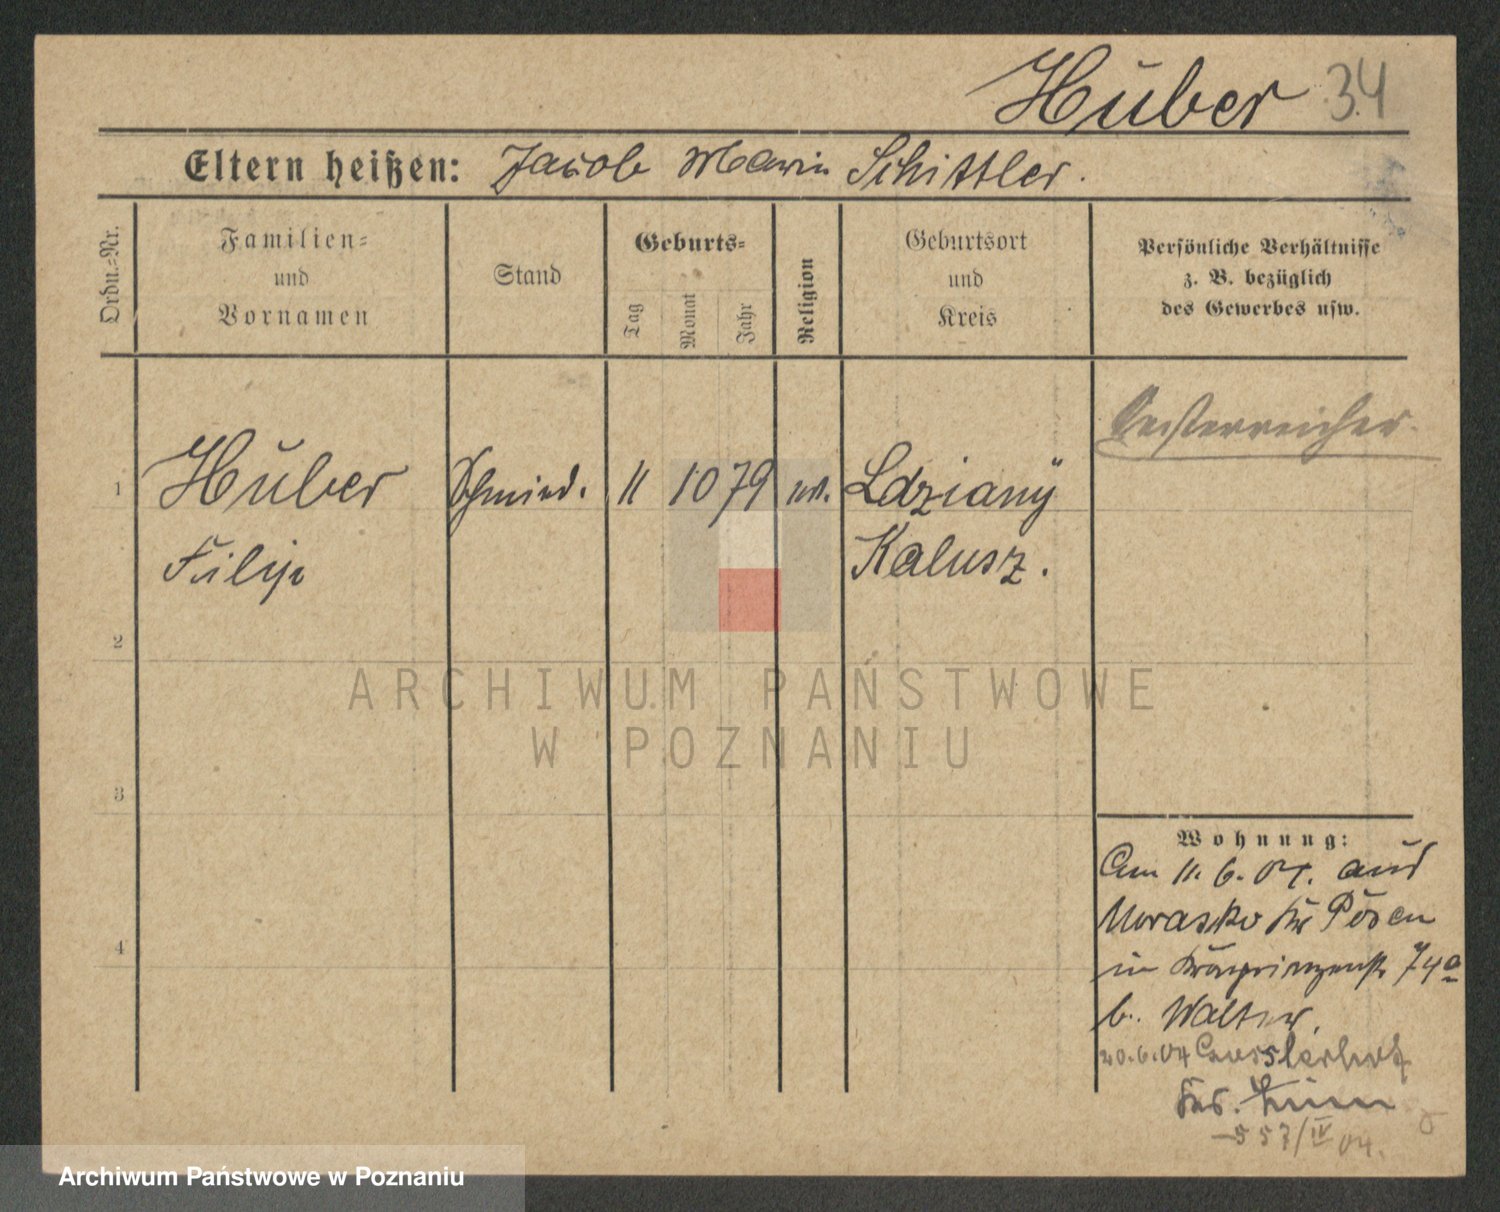 Hŭber 34
Eltern heißen: Jacob Marin Schittler.
Ordn.-Nr.
Familien- und Vornamen
Stand
Geburts-
Tag
Monat
Jahr
Religion
Geburtsort und Kreis
Persönliche Verhältnisse
z. B. bezüglich
des Gewerbes usw.
Oesterreicher.
1 Hŭber Schmied. 11 10 79 Ldziany
Filip Kalusz.
2
3
4
ARCHIWUM PAŃSTWOWE
W POZNANIU
Wohnung:
Am 11. 6. 04. aus
Morasko Kr Posen
in Kronprinzenstr 74a
b. Walter.
20.6.04
557/IV 04.
Archiwum Państwowe w Poznaniu